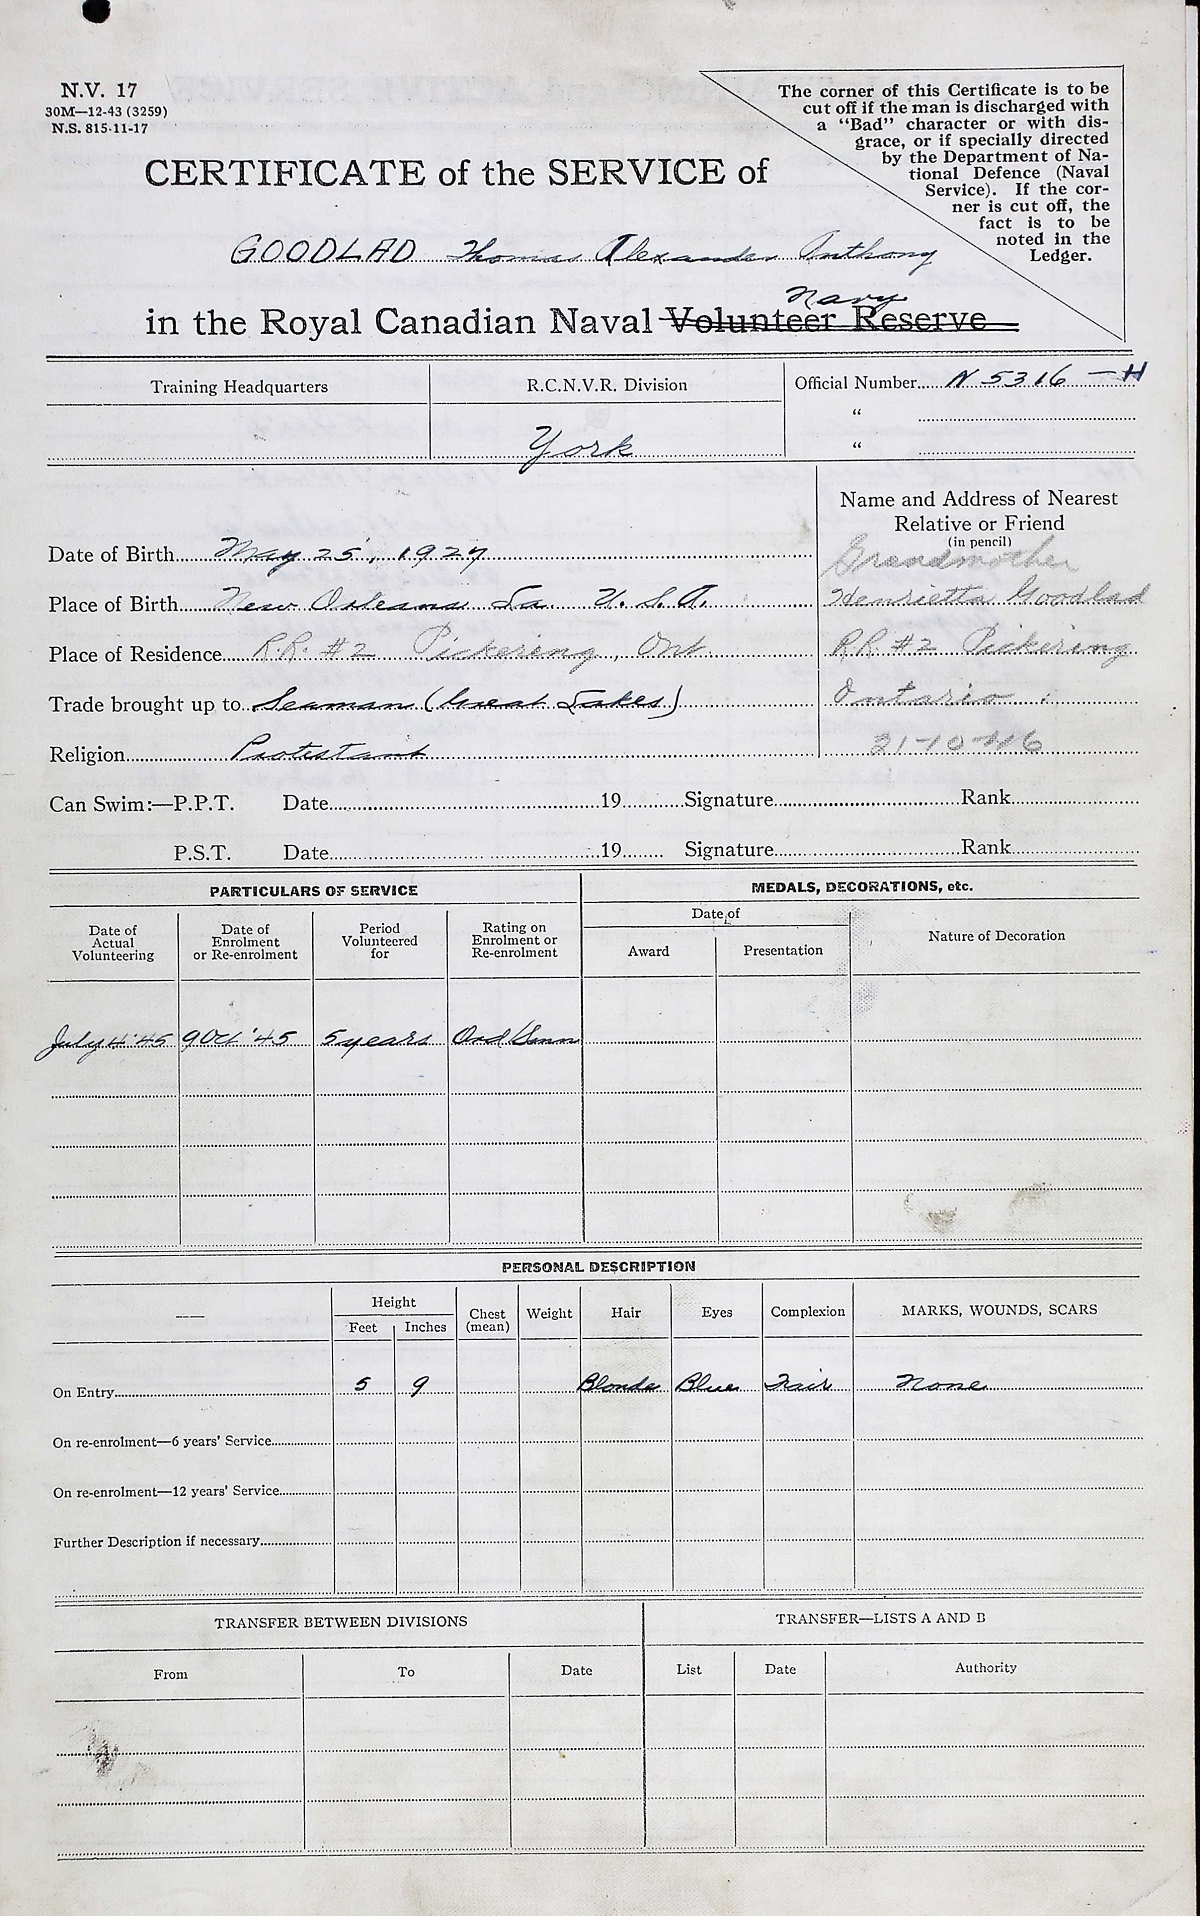 N.V. 17
30M—12-43 (3259)
N.S. 815-11-17
The corner of this Certificate is to be
cut off if the man is discharged with
a "Bad" character or with dis-
grace, or if specially directed
by the Department of Na-
tional Defence (Naval
Service). If the cor-
ner is cut off, the
fact is to be
noted in the
Ledger.
CERTIFICATE of the SERVICE of
GOODLAD Thomas Alexander Anthony
Navy
in the Royal Canadian Naval Volunteer Reserve
Training Headquarters R.C.N.V.R. Division Official Number N 5316 — H
"
York "
Name and Address of Nearest
Relative or Friend
(in pencil)
Date of Birth May 25, 1927 Grandmother
Place of Birth New Orleans La. U.S.A. Henrietta Goodlad
Place of Residence R.R. #2 Pickering, Ont R.R. #2 Pickering
Trade brought up to Seaman (Great Lakes) Ontario
Religion Protestant 21-10-46
Can Swim:—P.P.T. Date 19 Signature Rank
P.S.T. Date 19 Signature Rank
PARTICULARS OF SERVICE MEDALS, DECORATIONS, etc.
Date of Actual Volunteering Date of Enrolment or Re-enrolment Period Volunteered for Rating on Enrolment or Re-enrolment Date of Award Presentation Nature of Decoration
July 4 '45 9 Oct '45 5 years Ord/Smn
PERSONAL DESCRIPTION
— Height Feet Inches Chest (mean) Weight Hair Eyes Complexion MARKS, WOUNDS, SCARS
On Entry 5 9 Blonde Blue Fair None
On re-enrolment—6 years' Service
On re-enrolment—12 years' Service
Further Description if necessary
TRANSFER BETWEEN DIVISIONS TRANSFER—LISTS A AND B
From To Date List Date Authority